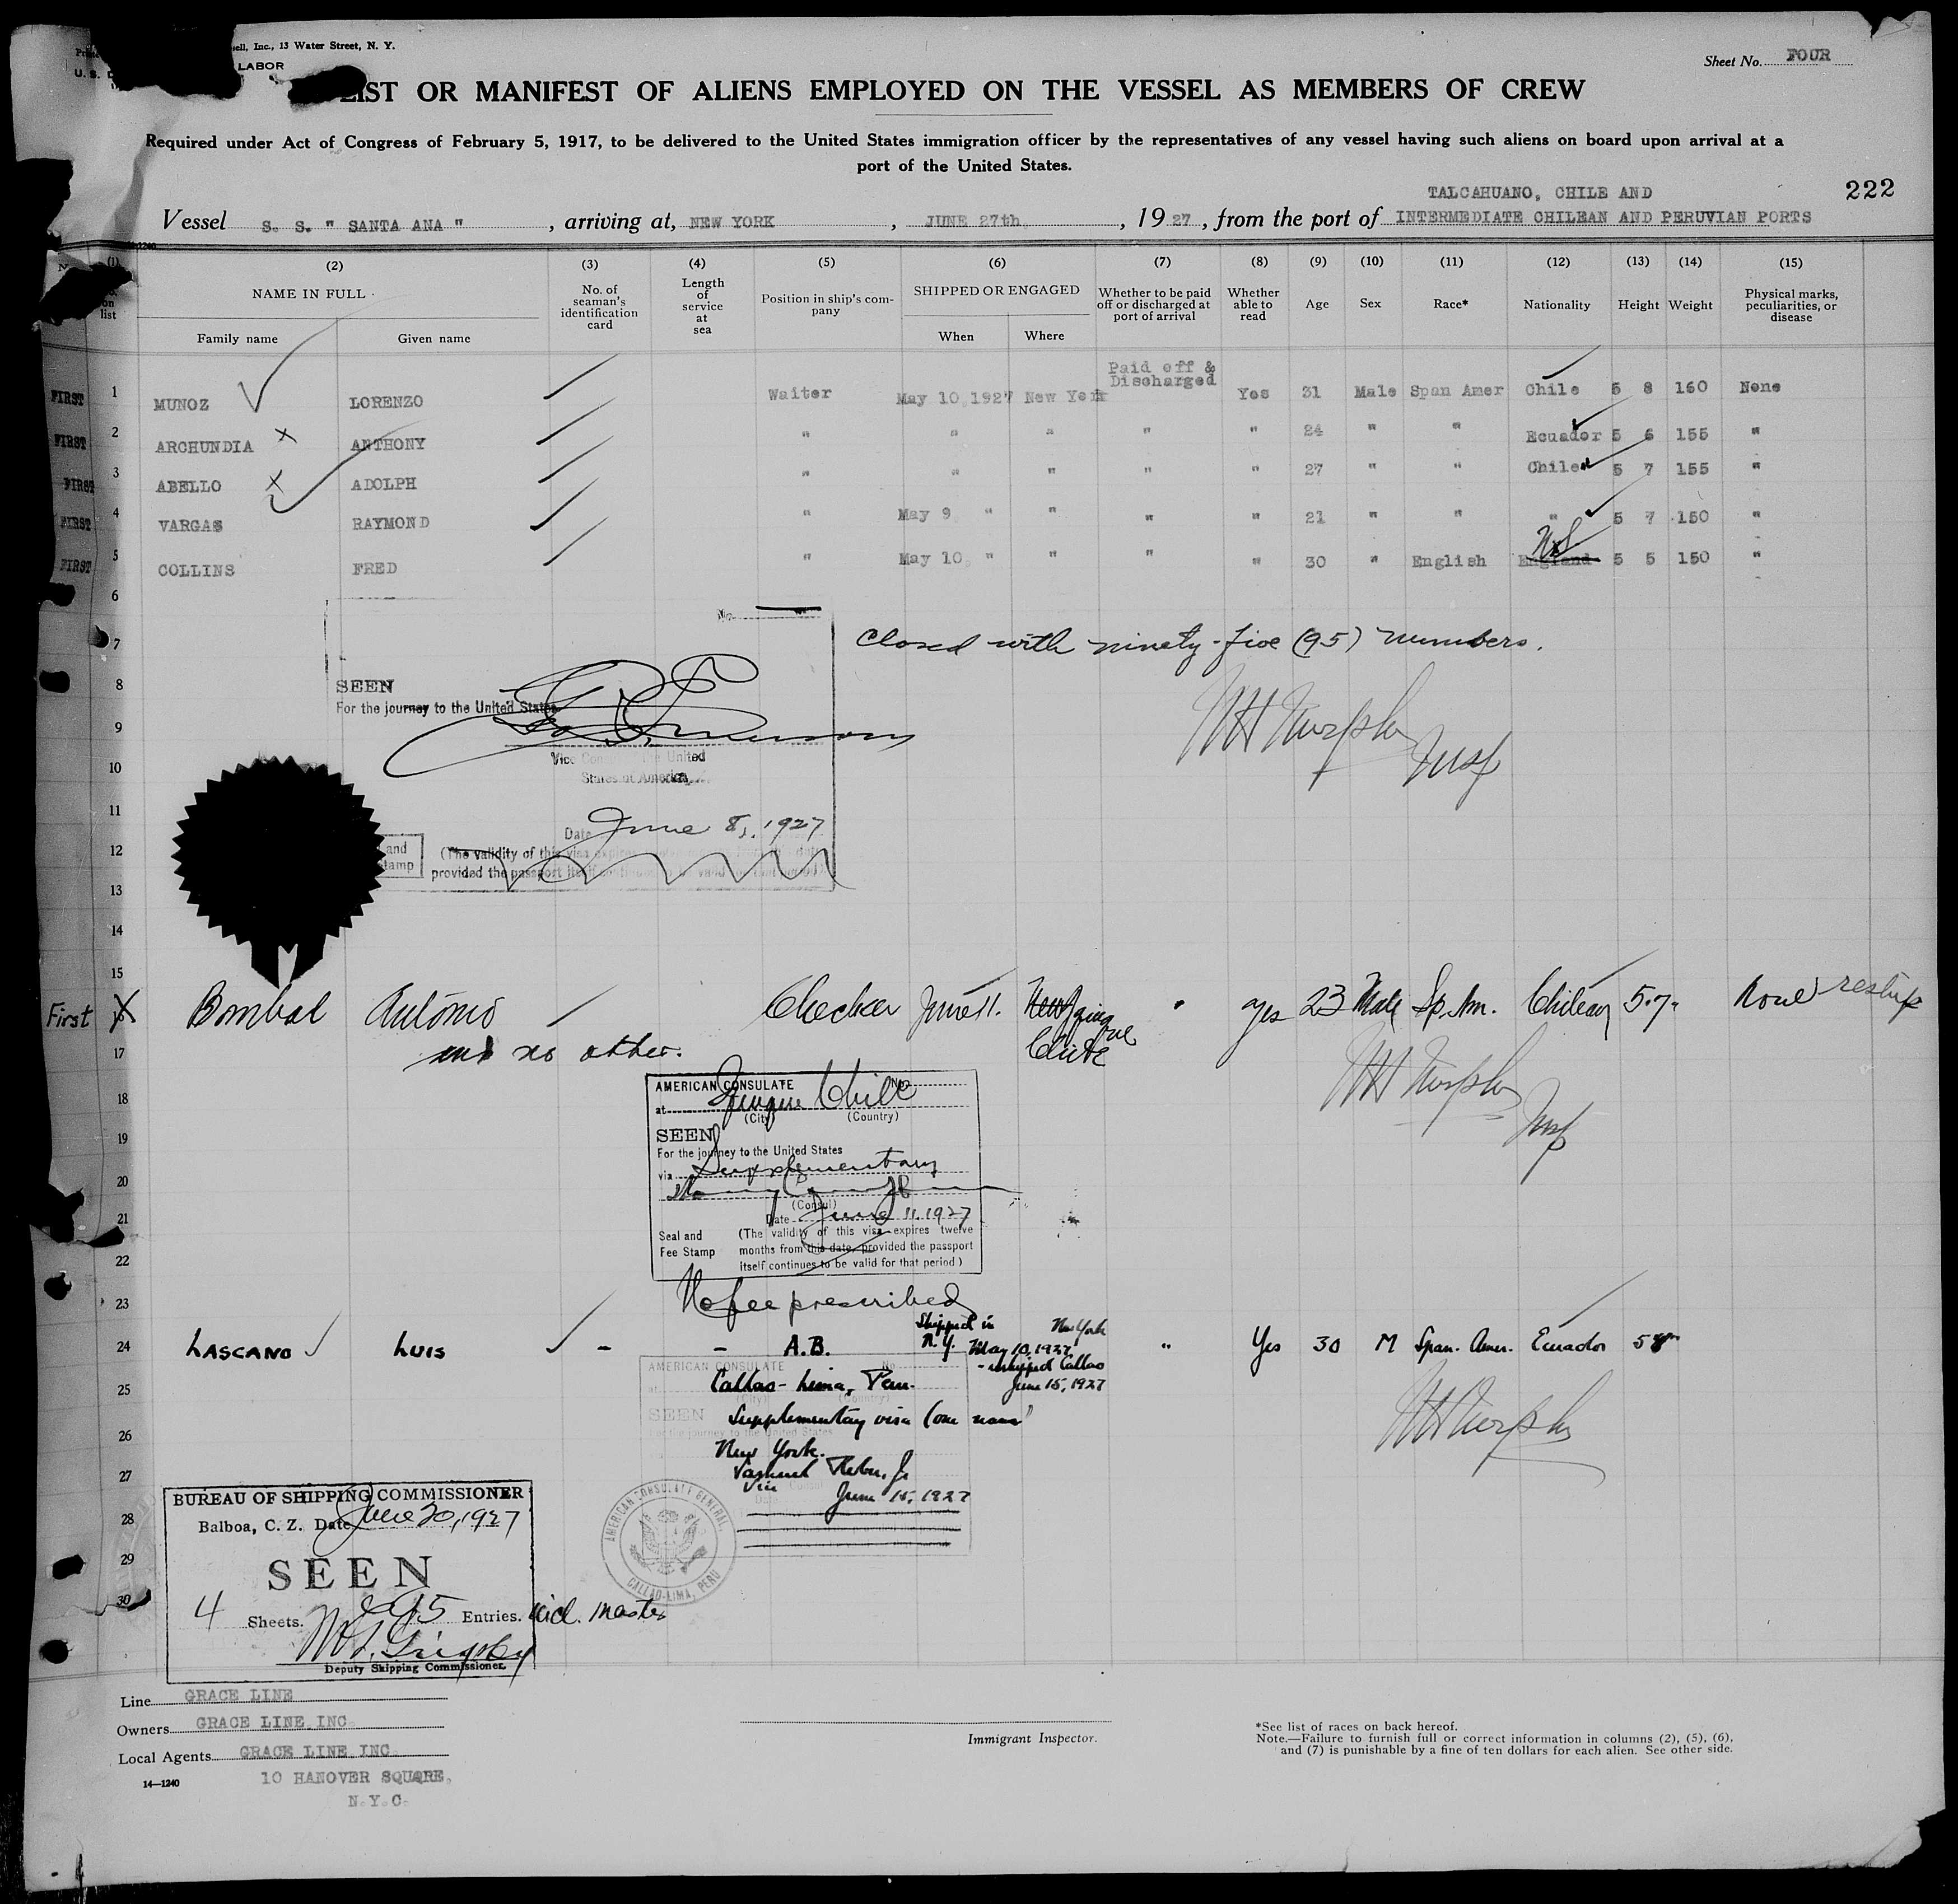 ell, Inc., 13 Water Street, N. Y.
U. S. LABOR
Sheet No. FOUR
LIST OR MANIFEST OF ALIENS EMPLOYED ON THE VESSEL AS MEMBERS OF CREW
Required under Act of Congress of February 5, 1917, to be delivered to the United States immigration officer by the representatives of any vessel having such aliens on board upon arrival at a
port of the United States.
222
TALCAHUANO, CHILE AND
Vessel S. S. " SANTA ANA " , arriving at, NEW YORK , JUNE 27th , 1927, from the port of INTERMEDIATE CHILEAN AND PERUVIAN PORTS
(1) (2) (3) (4) (5) (6) (7) (8) (9) (10) (11) (12) (13) (14) (15)
on list
NAME IN FULL
Family name Given name
No. of seaman's identification card
Length of service at sea
Position in ship's company
SHIPPED OR ENGAGED
When Where
Whether to be paid off or discharged at port of arrival
Whether able to read
Age Sex Race* Nationality Height Weight
Physical marks, peculiarities, or disease
Paid off & Discharged
FIRST 1 MUNOZ LORENZO Waiter May 10, 1927 New York Yes 31 Male Span Amer Chile 5 8 160 None
FIRST 2 ARCHUNDIA x ANTHONY " " " " " 24 " " Ecuador 5 6 155 "
FIRST 3 ABELLO x ADOLPH " " " " " 27 " " Chile 5 7 155 "
FIRST 4 VARGAS RAYMOND " May 9 " " " " 21 " " " 5 7 150 "
FIRST 5 COLLINS FRED " May 10, " " " " 30 " English England 5 5 150 "
6
No.
7 Closed with ninety-five (95) numbers.
8 SEEN
For the journey to the United States
9 W H Murphy
Vice Consul of the United
10 Insp
States of America
11
Date June 8, 1927
12 and (The validity of this visa expires
stamp provided the passport itself continues to be valid
13
14
15
First X Bombal Antonio Checker June 11. Iquique Chile " yes 23 Male Sp. Am. Chilean 5.7" None reship
17 and no other.
W H Murphy
Insp
18 AMERICAN CONSULATE No.
at Iquique Chile
(City) (Country)
19 SEEN
For the journey to the United States
via Supplementary
20
(Consul)
21 Date June 11, 1927
Seal and Fee Stamp
(The validity of this visa expires twelve
months from this date, provided the passport
itself continues to be valid for that period)
22
23 No fee prescribed
Shipped in N.Y. May 10, 1927 New York
24 LASCANO LUIS - - A.B. " Yes 30 M Span. Amer. Ecuador 5 8"
- reshipped Callao
June 15, 1927
AMERICAN CONSULATE No.
25 Callao-Lima, Peru.
SEEN
Supplementary visa (one name)
For the journey to the United States
26 New York.
W H Murphy
27 Reber, Jr
Vice Consul
June 15, 1927
AMERICAN CONSULATE GENERAL
CALLAO-LIMA, PERU
BUREAU OF SHIPPING COMMISSIONER
28 Balboa, C. Z. Date June 20, 1927
29 SEEN
30
4 Sheets. 95 Entries. incl. master
Deputy Shipping Commissioner.
Line GRACE LINE
Owners GRACE LINE INC.
Local Agents GRACE LINE INC.
14—1240
10 HANOVER SQUARE,
N.Y.C.
Immigrant Inspector.
*See list of races on back hereof.
Note.—Failure to furnish full or correct information in columns (2), (5), (6),
and (7) is punishable by a fine of ten dollars for each alien. See other side.